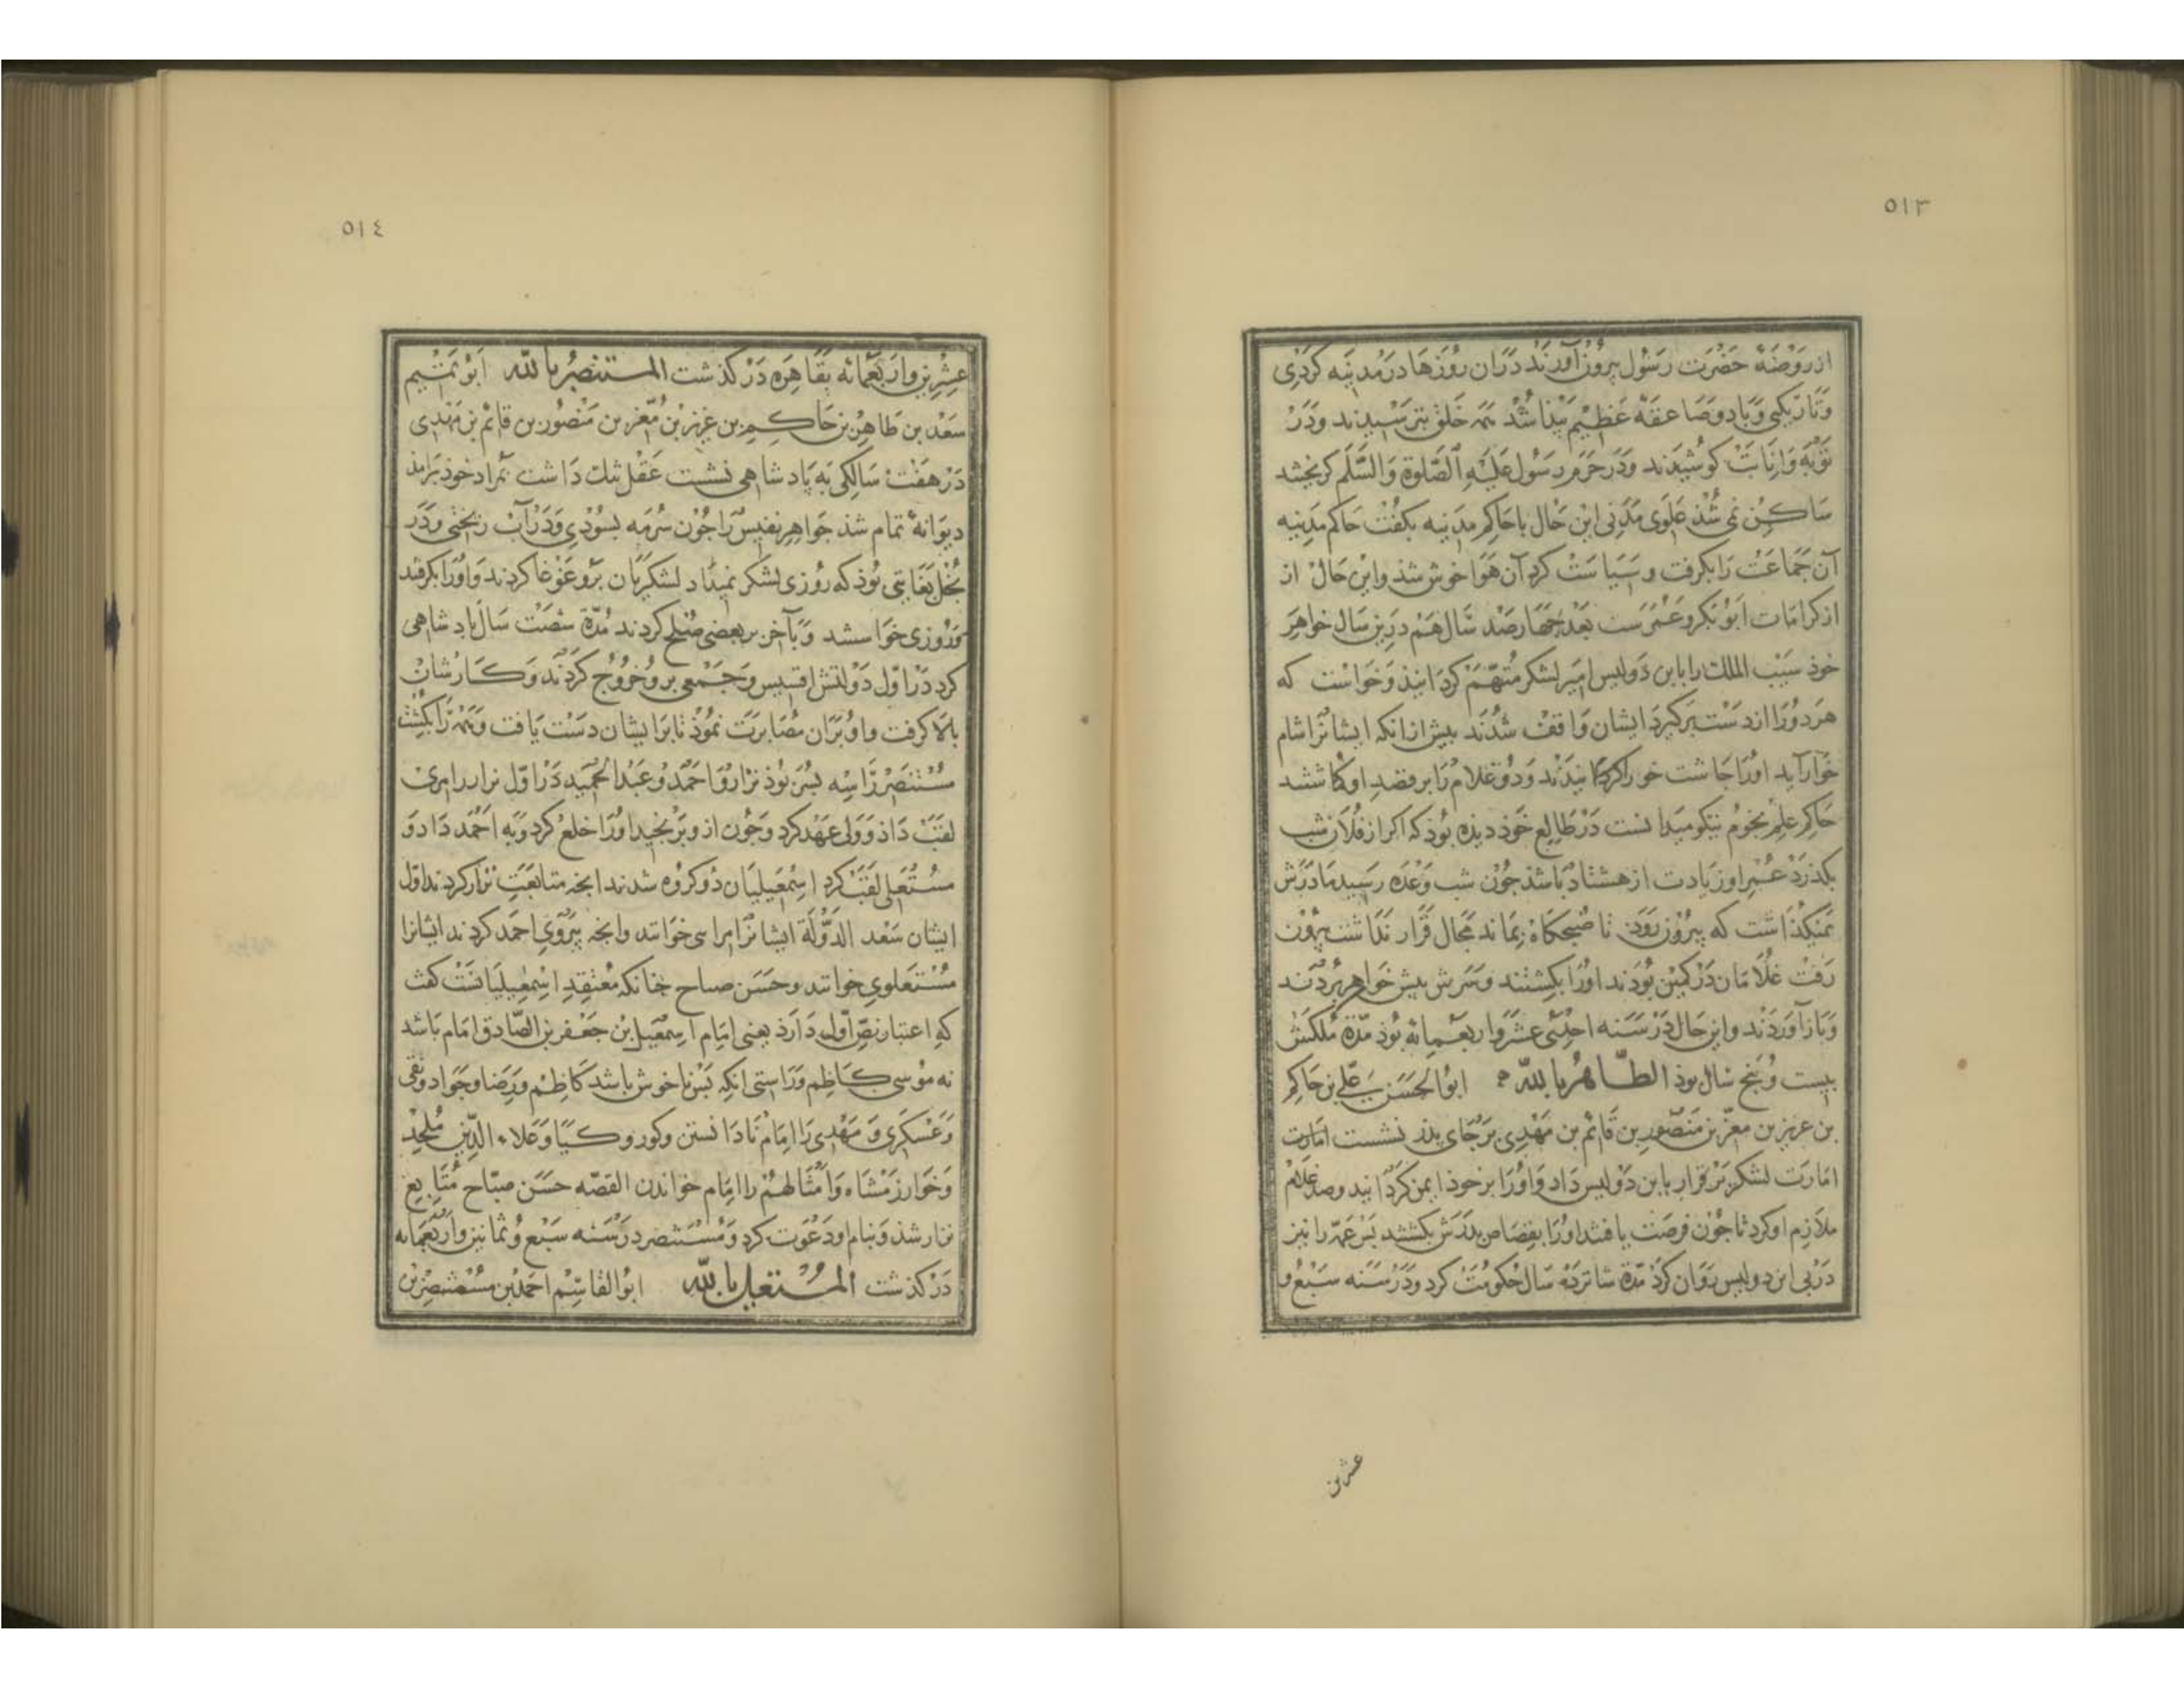 ٥١٣
از روضهٔ حضرت رسول بیرون آورند دران روزها در مدینه کردی
و تاریکی و باد و صاعقهٔ عظیم پیدا شد همه خلق بترسیدند و در
توبه و انابت کوشیدند و در حرم رسول علیه الصلوة والسلم کریختند
ساکن نمی شذ علوی مدنی این حال با حاکم مدینه بکفت حاکم مدینه
آن جماعت را بکرفت و سیاست کرد آن هوا خوش شذ و این حال از
از کرامات ابوبکر و عمرست بعد جهارصد سال هم درین سال خواهر
خوذ سیب الملک را بابن دولیس امیر لشکر متهم کردانیذ و خواست که
هر دو را از دست برکیرد ایشان واقف شدند بیش ازانکه ایشانرا شام
خورآید او را جاشت خور اکردانیدند و دو غلام را بر قصد او کماشتند
حاکم علم نجوم نیکو میدانست در طالع خوذ دیذه بوذ که اکر از فلان شب
بکذرد عمر او زیادت از هشتاد باشذ جون شب وعده رسید مادرش
نمیکذاشت که بیرون روذ تا صبحکاه نماند مجال قرار نداشت بیرون
رفت غلامان در کمین بوذند او را بکشتند و سرش بیش خواهر بردند
و باز آوردند و این حال در سنه احدی عشر و اربعمایه بوذ مدة ملکش
بیست و بنج سال بوذ الظاهر بالله ابوالحسن علی بن حاکم
بن عزیز بن معز بن منصور بن قائم بن مهدی بر جای بدر نشست امارت
امارت لشکر بر قرار بابن دولیس داد و او را بر خوذ ایمن کردانید و صد غلام
ملازم او کرد تا جون فرصت یافتند او را بقصاص بدرش بکشتند بس عمه را نیز
در پی ابن دولیس روان کرد مدة شانزده سال حکومت کرد و در سنه سبع و
عشرین
٥١٤
عشرین و اربعمائه بقاهره در کذشت المستنصر بالله ابو تمیم
سعد بن طاهر بن حاکم بن عزیز بن معز بن منصور بن قائم بن مهدی
در هفت سالکی به پادشاهی نشست عقل تنک داشت بمراد خوذ برامذ
دیوانهٔ تمام شذ جواهر نفیس را جون سرمه بسودی و در آب ریختی و در
بخل بغایتی بوذ که روزی لشکر نمیداد لشکریان برو غوغا کردند و او را بکرفتند
و روزی خواستند و بآخر بر بعضی صلح کردند مدة شصت سال بادشاهی
کرد در اول دولتش اقسیس و جمعی برو خروج کردند و کارشان
بالا کرفت و او بران مصابرت نموذ تا بر ایشان دست یافت و همه را بکشت
مستنصر را سه بسر بوذ نزار و احمد و عبد الحمید در اول نزار را
لقب داذ و ولی عهد کرد و جون ازو برنجید او را خلع کرد و به احمد داد و
مستعلی لقب کرد اسمعیلیان دو کروه شدند انجه متابعت نزار کردند اول
ایشان سعد الدولة ایشانرا می خوانند و انجه پیروی احمد کردند ایشانرا
مستعلوی خوانند و حسن صباح جنانکه معتقد اسمعیلیانست کفت
که اعتبار نص اول دارد یعنی امام اسمعیل بن جعفر بن الصادق امام باشد
نه موسی کاظم و راستی انکه بس ناخوش باشد کاظم و رضا و جواد و نقی
و عسکری و مهدی را امام نا دانستن و کور و کیا و علاء الدین ملحد
و خوارزمشاه و امثالهم را امام خواندن القصه حسن صباح متابع
نزار شذ و بنام او دعوت کرد و مستنصر در سنه سبع و ثمانین و اربعمایه
در کذشت المستعلی بالله ابو القاسم احمد بن مستنصر بن